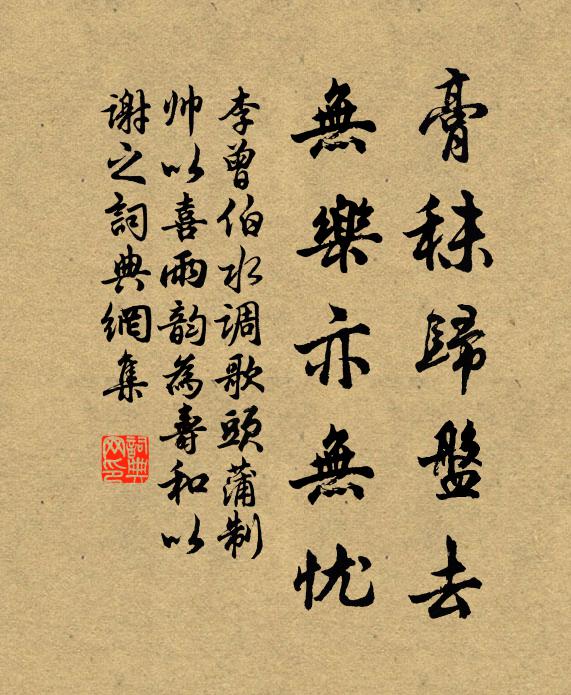 膏秣歸盤去
無樂亦無忧
李曾伯水调歌頭蒲制
帅以喜雨韵為壽和以
謝之詞典網集
詞典
网印